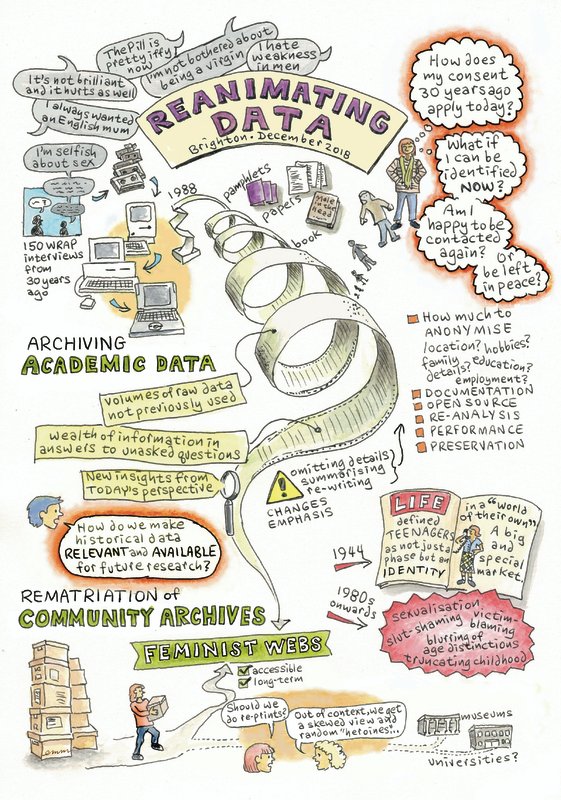 The Pill is
pretty iffy
now
I'm not bothered about
being a virgin
I hate
weakness
in men
It's not brilliant
and it hurts as well
I always wanted
an English mum
I'm selfish
about sex
REANIMATING
DATA
Brighton. December 2018
How does
my consent
30 years ago
apply today?
What if
I can be
identified
NOW?
Am I
happy to be
contacted
again?
or
be left
in peace?
150 WRAP
interviews
from
30 years
ago
1988
pamphlets
papers
book
Male in
the
Head
ARCHIVING
ACADEMIC DATA
volumes of raw data
not previously used
wealth of information in
answers to unasked questions
New insights from
TODAY'S perspective
HOW MUCH TO
ANONYMISE
location? hobbies?
family details? education?
employment?
DOCUMENTATION
OPEN SOURCE
RE-ANALYSIS
PERFORMANCE
PRESERVATION
omitting details
summarising
re-writing
CHANGES
EMPHASIS
How do we make
historical data
RELEVANT and AVAILABLE
for future research?
1944
LIFE
defined
TEENAGERS
as not just a
phase but an
IDENTITY
in a "world
of their own"
A big
and
special
market.
1980s
onwards
sexualisation victim-
slut-shaming blaming
blurring of
age distinctions
truncating childhood
REMATRIATION of
COMMUNITY ARCHIVES
FEMINIST WEBS
accessible
long-term
Should we
do re-prints?
Out of context, we get
a skewed view and
random "heroines"...
museums
universities?
emm